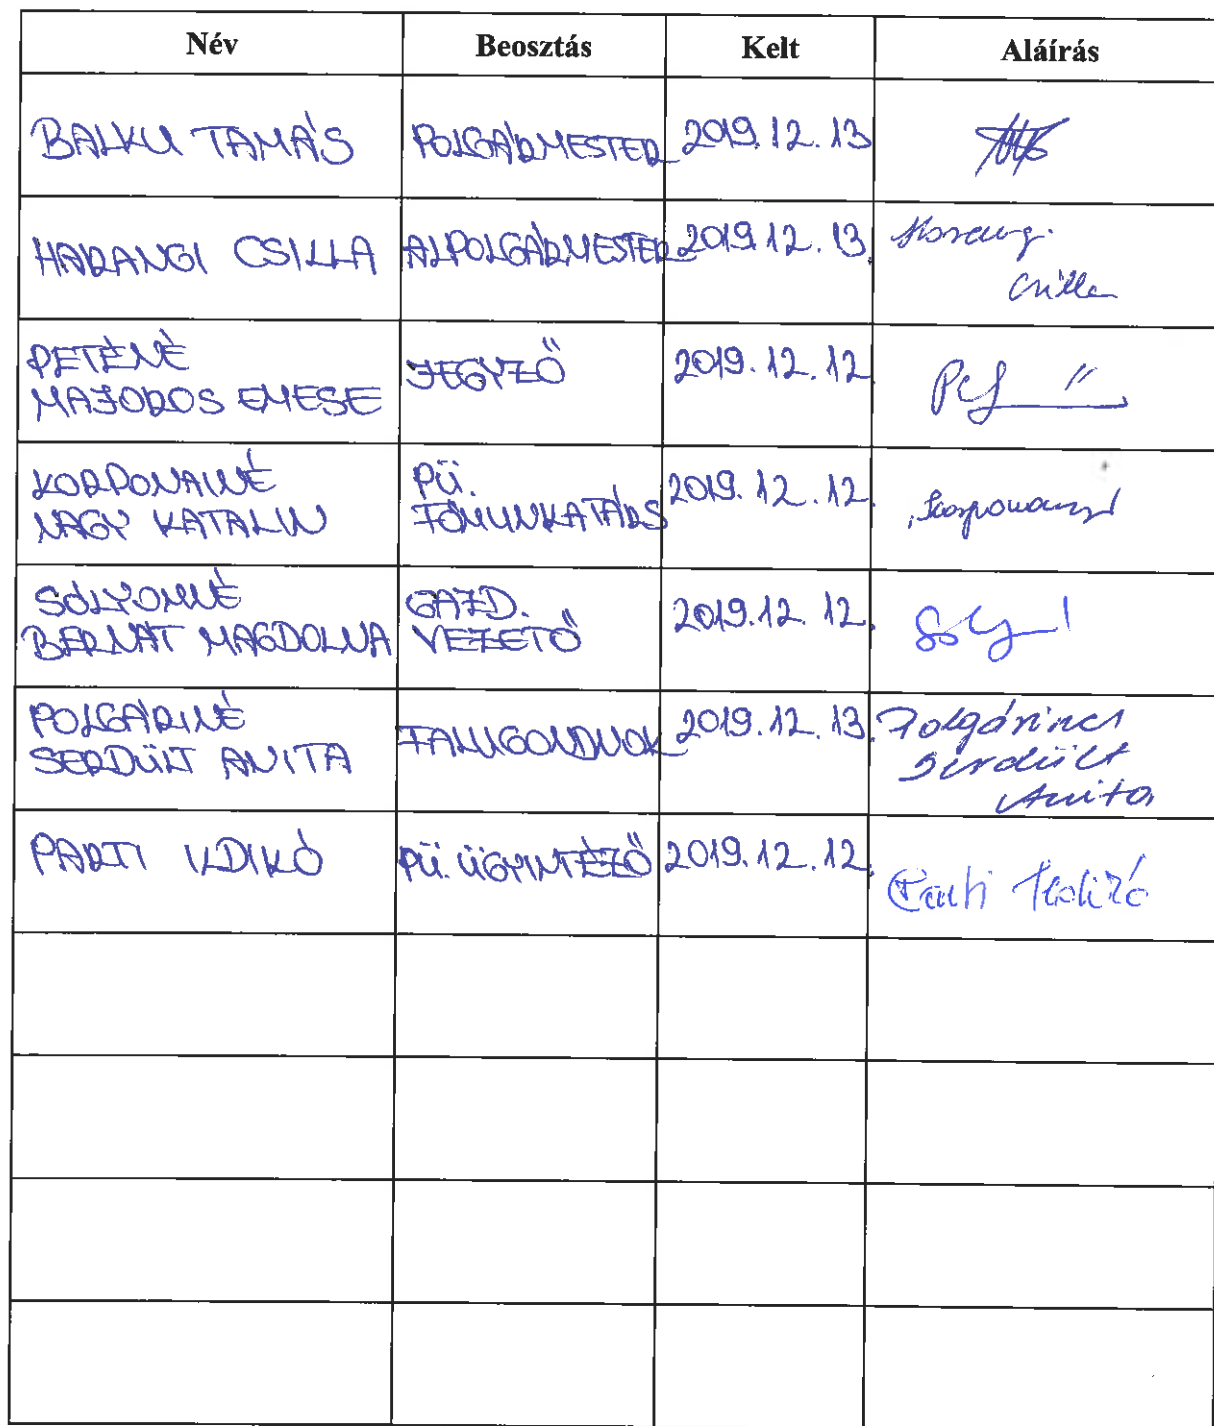 Név Beosztás Kelt Aláírás
BALKU TAMÁS POLGÁRMESTER 2019.12.13
HARANGI CSILLA ALPOLGÁRMESTER 2019.12.13. Harangi
Csilla
PETÉNÉ
MAJOROS EMESE JEGYZŐ 2019.12.12
KORPONAINÉ
NAGY KATALIN PÜ.
FŐMUNKATÁRS 2019.12.12.
SÓLYOMNÉ
BERNÁT MAGDOLNA GAZD.
VEZETŐ 2019.12.12.
POLGÁRINÉ
SERDÜLT ANITA FALUGONDNOK 2019.12.13. Polgáriné
Serdült
Anita
PARTI ILDIKÓ PÜ. ÜGYINTÉZŐ 2019.12.12. Parti Ildikó